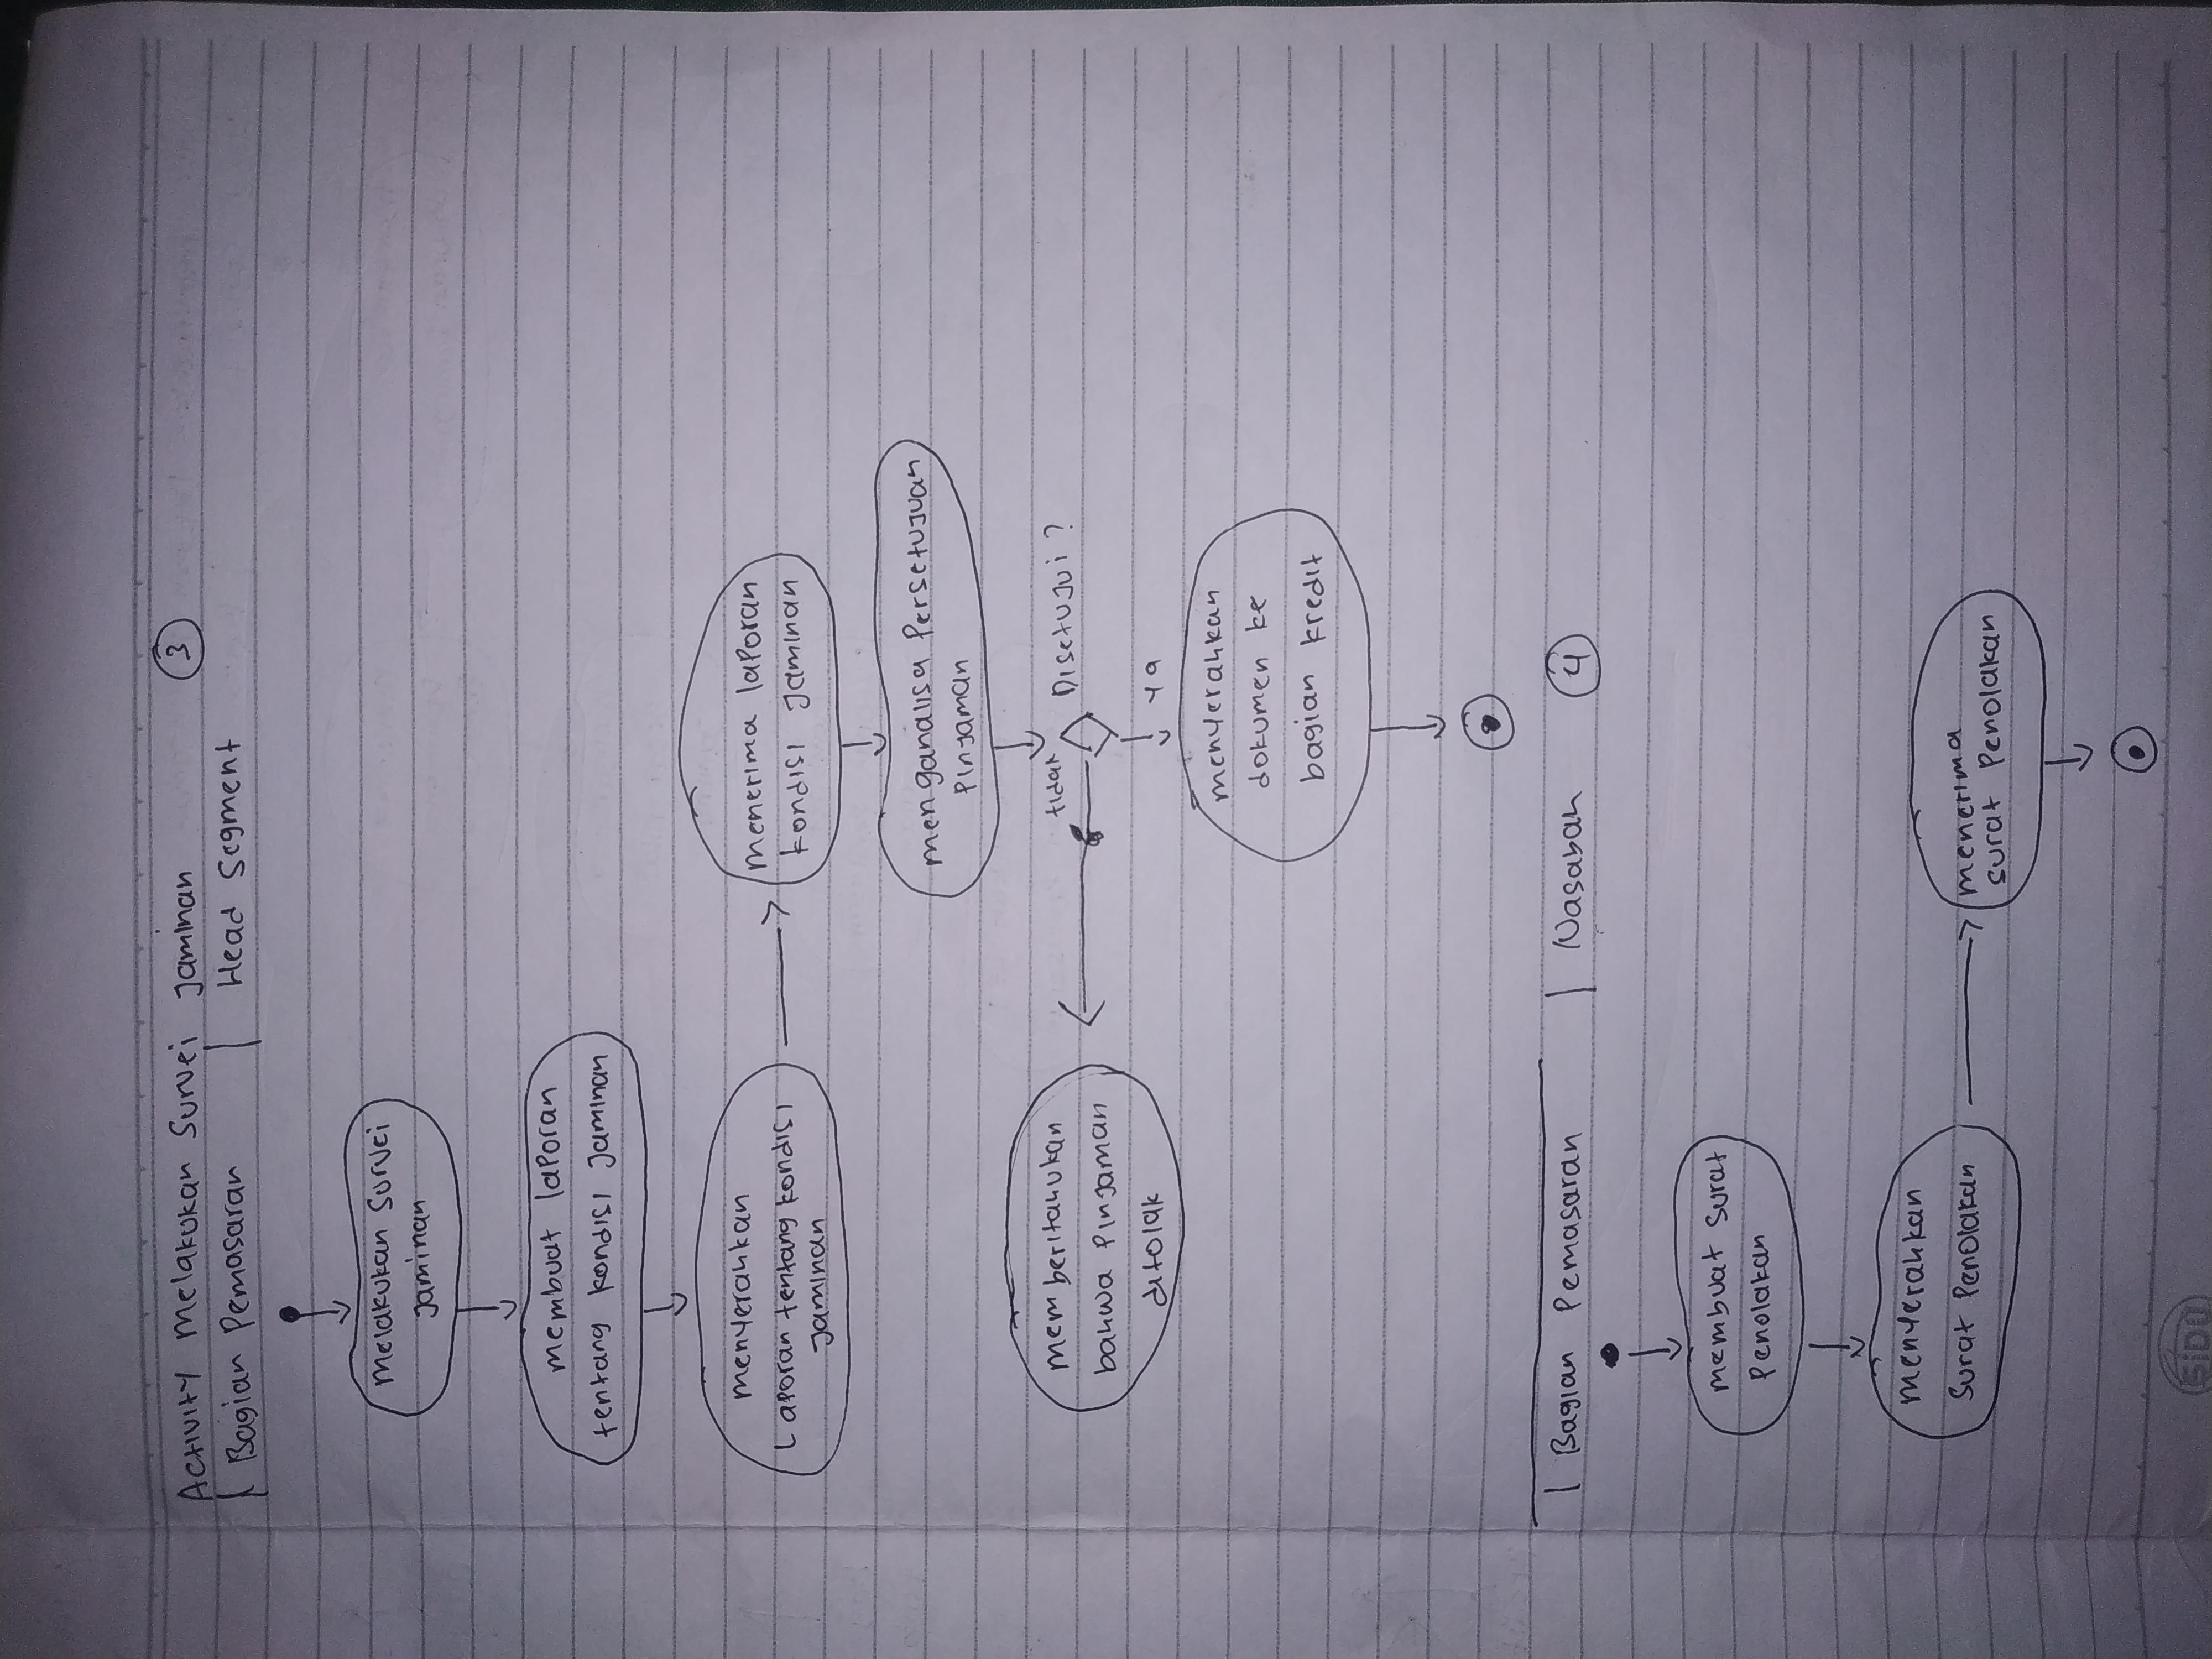 Activity Melakukan Survei Jaminan 3
Bagian Pemasaran Head Segment
Melakukan Survei
Jaminan
membuat laporan
tentang kondisi Jaminan
menyerahkan
Laporan tentang kondisi
Jaminan
menerima laporan
kondisi Jaminan
menganalisa Persetujuan
Pinjaman
tidak
Disetujui ?
memberitahukan
bahwa Pinjaman
ditolak
ya
menyerahkan
dokumen ke
bagian kredit
Bagian Pemasaran Nasabah 4
membuat surat
Penolakan
menyerahkan
Surat Penolakan
menerima
surat Penolakan
SIDU